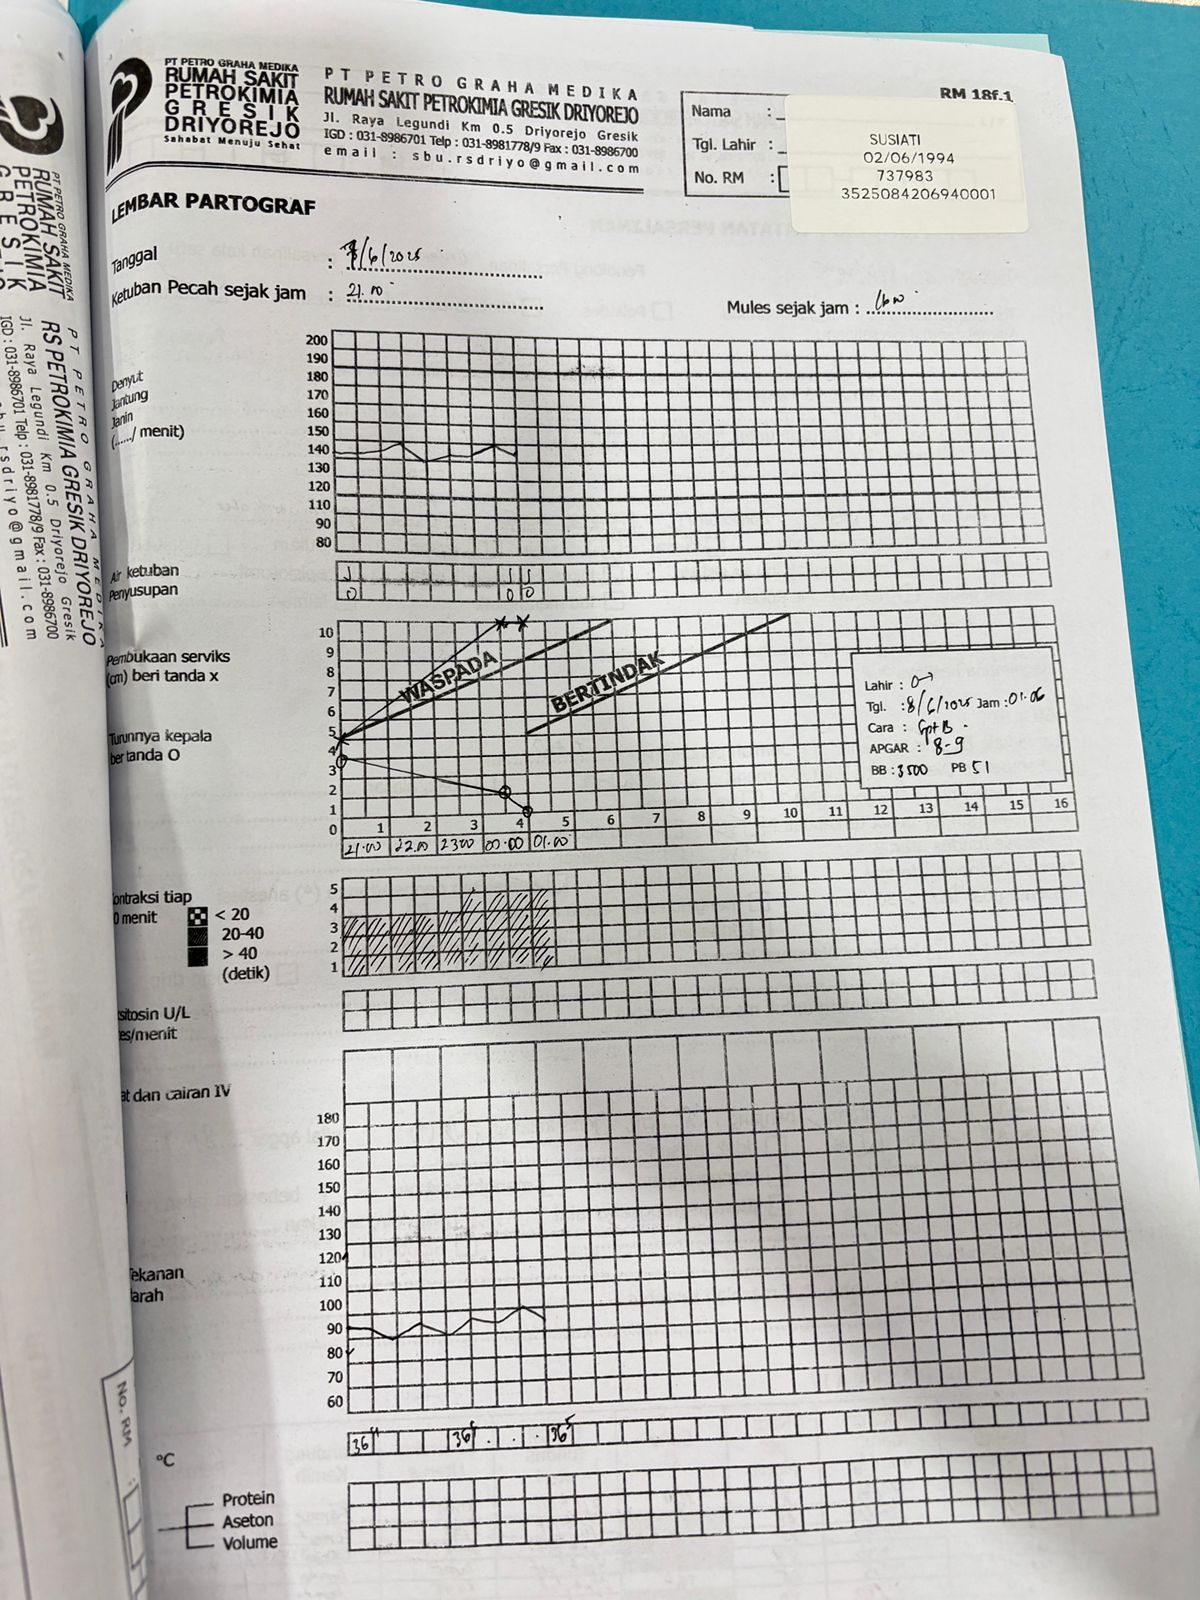 PT PETRO GRAHA MEDIKA
RUMAH SAKIT
PETROKIMIA
GRESIK
DRIYOREJO
Sahabat Menuju Sehat
PT PETRO GRAHA MEDIKA
RUMAH SAKIT PETROKIMIA GRESIK DRIYOREJO
Jl. Raya Legundi Km 0.5 Driyorejo Gresik
IGD : 031-8986701 Telp : 031-8981778/9 Fax : 031-8986700
email : sbu.rsdriyo@gmail.com
RM 18f.1
Nama :
Tgl. Lahir :
No. RM :
SUSIATI
02/06/1994
737983
3525084206940001
LEMBAR PARTOGRAF
Tanggal : /6/2025
Ketuban Pecah sejak jam : 21.00
Mules sejak jam :
Denyut
Jantung
Janin
(....../ menit)
200
190
180
170
160
150
140
130
120
110
90
80
Air ketuban
Penyusupan
J J J
0 0 0
Pembukaan serviks
(cm) beri tanda x
Turunnya kepala
ber tanda O
10
9
8
7
6
5
4
3
2
1
0
WASPADA
BERTINDAK
Lahir :
Tgl. : 8/6/2025 Jam : 01.06
Cara : Spt B
APGAR : 8-9
BB : 3500 PB 51
1 2 3 4 5 6 7 8 9 10 11 12 13 14 15 16
21.00 22.00 23.00 00.00 01.00
ontraksi tiap
0 menit
< 20
20-40
> 40
(detik)
5
4
3
2
1
sitosin U/L
es/menit
at dan cairan IV
180
170
160
150
140
130
120
110
100
90
80
70
60
Tekanan
arah
°C
36 36 36⁵
Protein
Aseton
Volume
PT PETRO GRAHA MEDIKA
RUMAH SAKIT
PETROKIMIA
GRESIK
PT PETRO GRAHA MEDIKA
RS PETROKIMIA GRESIK DRIYOREJO
Jl. Raya Legundi Km 0.5 Driyorejo Gresik
IGD : 031-8986701 Telp : 031-8981778/9 Fax : 031-8986700
rsdriyo@gmail.com
No. RM :